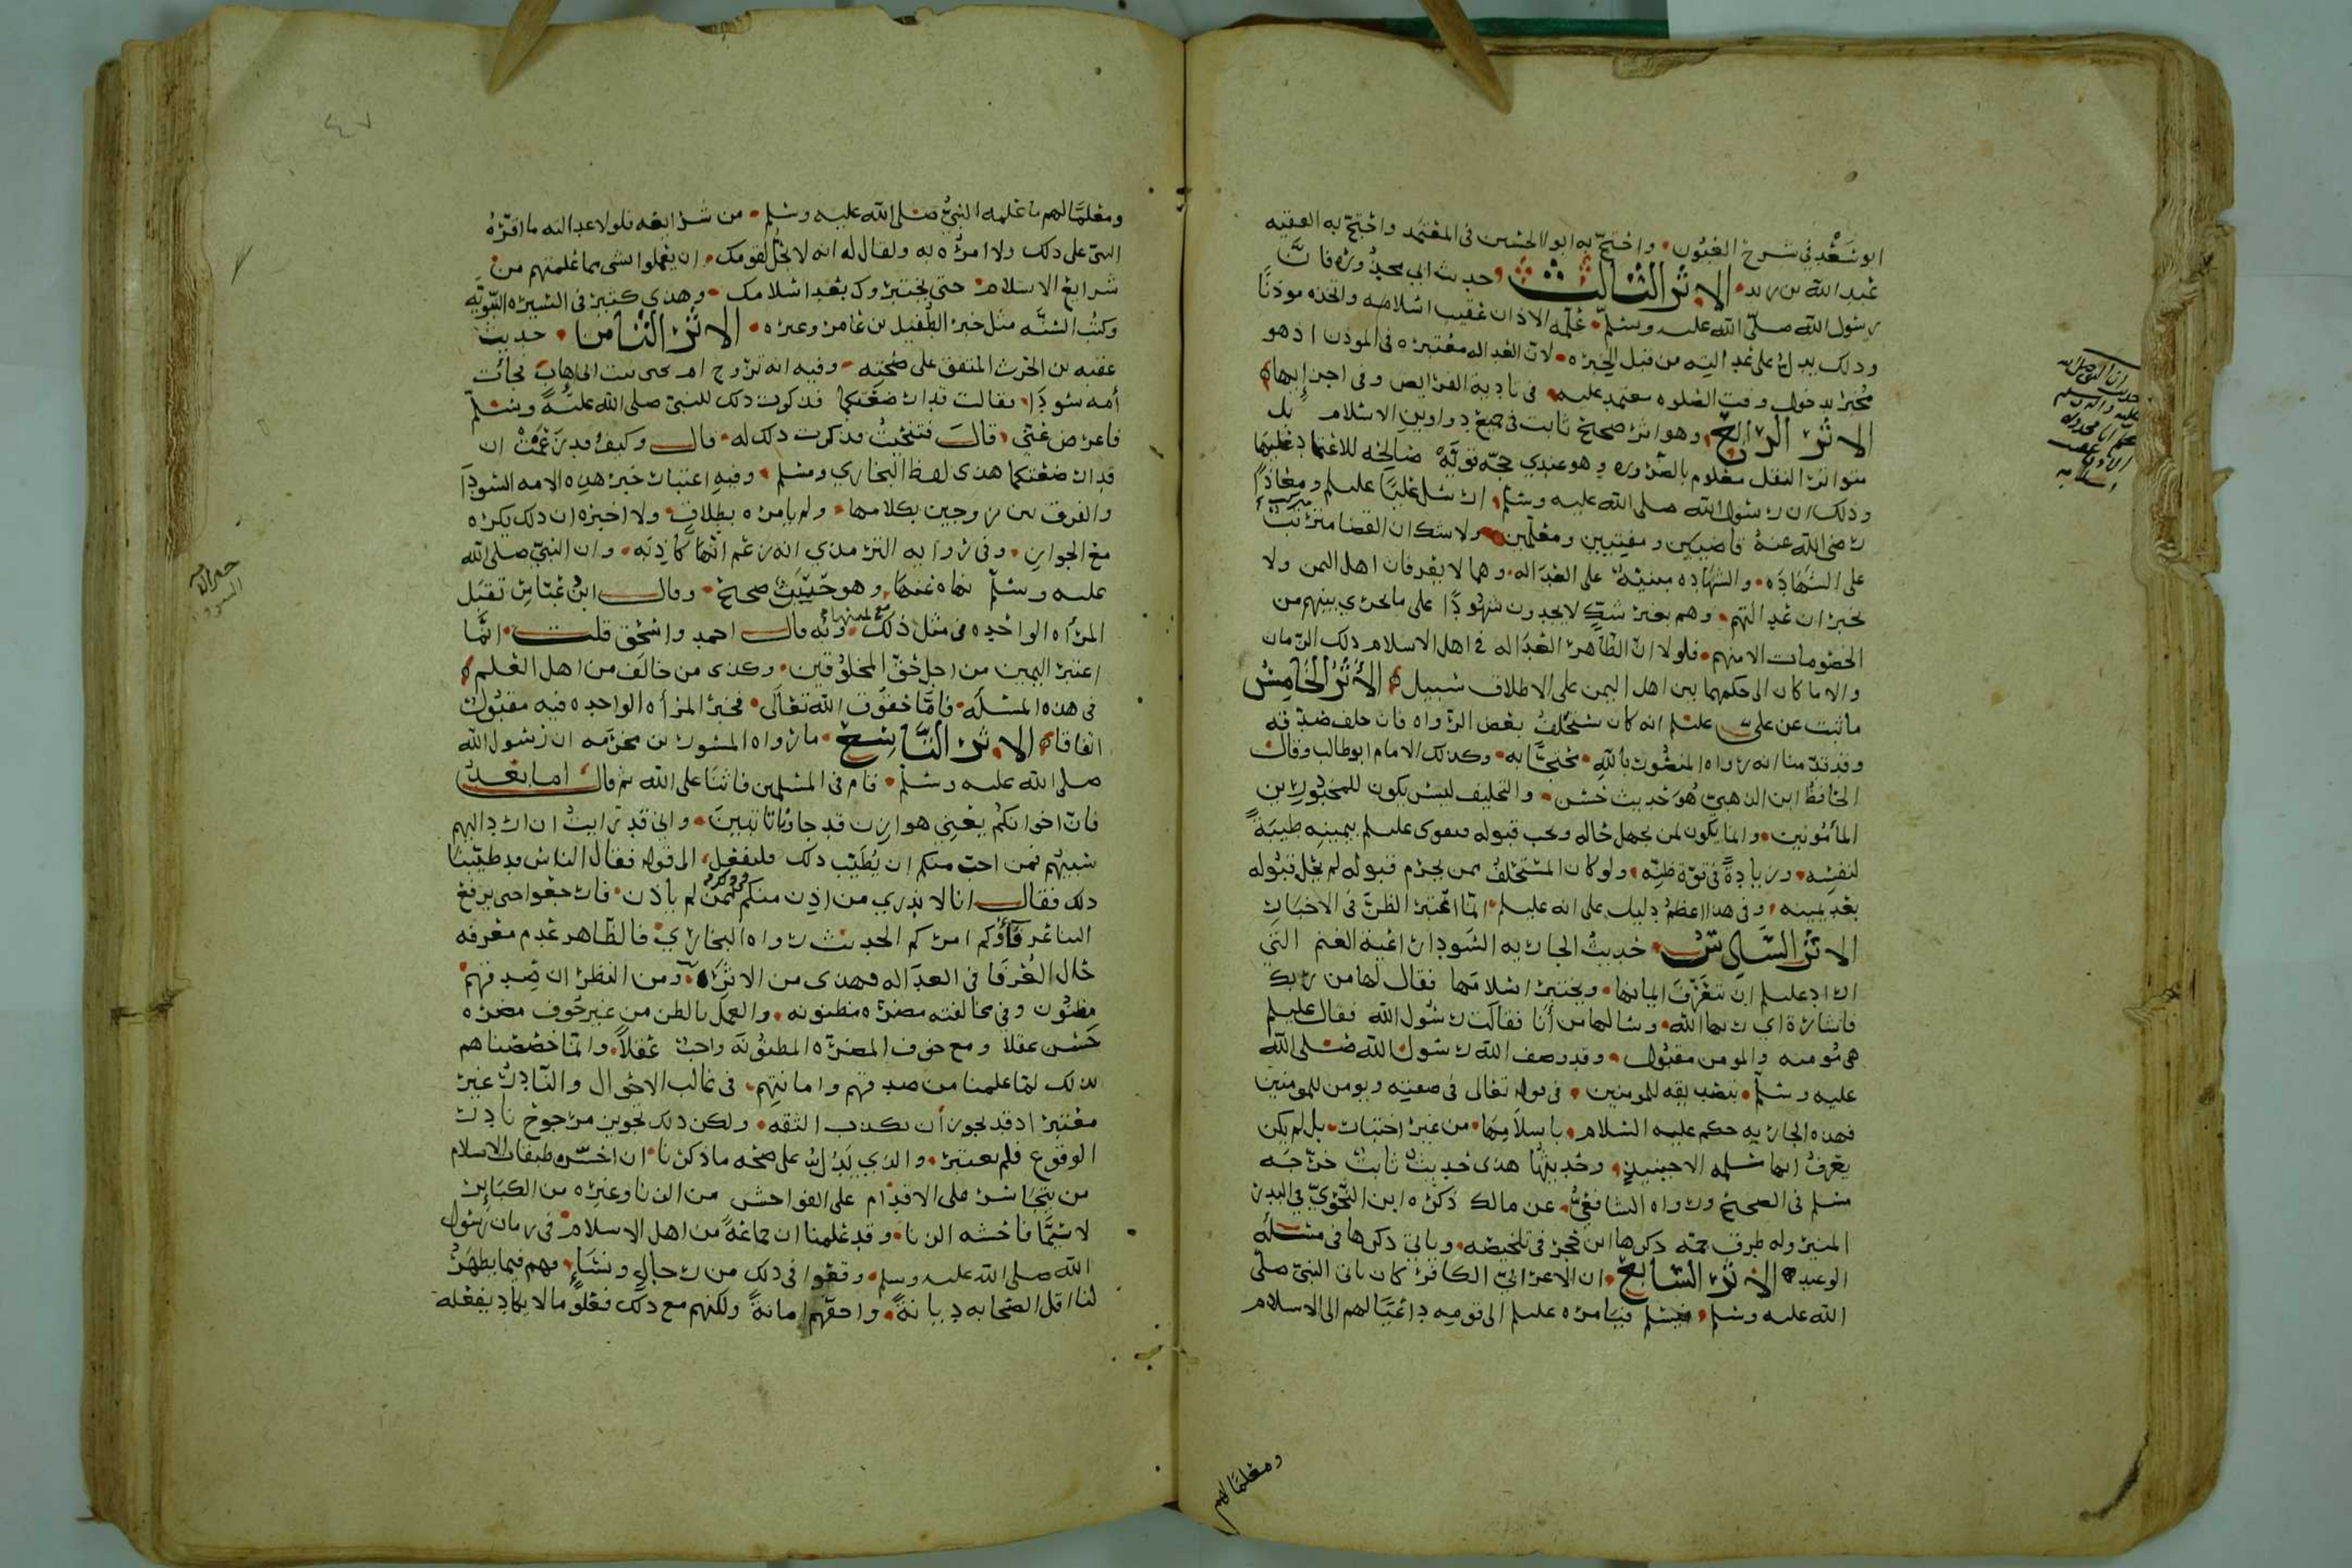 ابو سعد في شرح العيون واحتج به ابو الحسين في المعتمد واحتج به الفقيه
عبد الله بن زيد الاثر الثالث حديث ابي محذوره فان
رسول الله صلى الله عليه وسلم علمه الاذان عقيب اسلامه واتخذه موذنًا
ودلك يدل على عدالته من قبل الخبره لان العداله معتبره في الموذن اذ هو
مخبر بدخول وقت الصلوه معتمد عليه في تادية الفرايض وفي اجزايها
الاثر الرابع وهو اثر صحيح ثابت في جميع دواوين الاسلام بل
متواتر النقل معلوم بالضروره وهو عندي حجه قويَّه صالحه للاعتماد عليها
وذلك ان رسول الله صلى الله عليه وسلم ارسل عليًا عليلم ومعاذًا
رضي الله عنه قاضيين ومفتيين ومعلمين ولا شك ان القضا مترتب
على الشهاده والشهاده مبنيه على العداله وهما لا يعرفان اهل اليمن ولا
يخبران عدالتهم وهم بغير شك لا يجدون شهودًا على ما يجري بينهم من
الخصومات الا منهم فلولا ان الظاهر العداله في اهل الاسلام ذلك الزمان
والا ما كان الى حكمهما بين اهل اليمن على الاطلاق سبيل الاثر الخامس
ما ثبت عن علي عليلم انه كان يستحلف بعض الرواه فان حلف صدقه
وقد قدمنا انه رواه المنصور بالله محتجًا به وكذلك الامام ابو طالب وقال
الحافظ ابن الذهبي هو حديث حسن والتحليف ليس يكون للمخبورين
المأمونين وانما يكون لمن يجهل حاله ويجب قبوله فيقوى عليلم بيمينه طيبَةً
لنفسه وزيادةً في قوة ظنه ولو كان المستحلف ممن يحرم قبوله لم يحل قبوله
بعد يمينه وفي هذا اعظم دليل على انه عليلم انما اعتبر الظن في الاخبار
الاثر السادس حديث الجاريه السودا راعية الغنم التي
اراد عليلم ان يتعرف ايمانها ويختبر اسلامها فقال لها من ربك
فاشارة اي ربها الله وسالها من أنا فقالت رسول الله فقال عليلم
هي مومنه والمومن مقبول وقد وصف الله رسول الله صلى الله
عليه وسلم بتصديقه للمومنين في قوله تعالى في صفته ويومن للمومنين
فهذه الجاريه حكم عليه السلام باسلامها من غير اختبار بل لم يكن
يعرف انها مسلمه الا حينئذٍ وحديثها هذى حديث ثابت خرجه
مسلم في الصحيح ورواه الشافعي عن مالك ذكره ابن النحوي في البدر
المنير وله طرق جمه ذكرها ابن حجر في تلخيصه وياتي ذكرها في مسئله
الوعيد الاثر السابع ان الاعرابي الكافر كان ياتي النبي صلى
الله عليه وسلم فيسلم فيامره عليلم الى قومه داعيًا لهم الى الاسلام
ومعلمًا لهم
حديث ان النبي صلى الله
عليه واله وسلم
علم ابا محذوره
الاذان عقيب
اسلامه
٤٧
ومعلمًا لهم ما علمه النبي صلى الله عليه وسلم من شرايعه فلولا عدالته ما اقره
النبي على ذلك ولا امره به ولقال له انه لا يحل لقومك ان يعملوا بشى مما علمتهم من
شرايع الاسلام حتى يختبروك بعد اسلامك وهذى كثير في السيره النبويه
وكتب السنه مثل خبر الطفيل بن عامر وغيره الاثر الثامن حديث
عقبه بن الحرث المتفق على صحته وفيه انه تزوج ام يحيى بنت ابي إهاب فجائت
أمه سودا فقالت قد ارضعتكما فذكرت ذلك للنبي صلى الله عليه وسلم
فاعرض عني قال فتنحيت فذكرت ذلك له قال وكيف وقد زعمت ان
قد ارضعتكما هذى لفظ البخاري ومسلم وفيه اعتبار خبر هذه الامه السودا
والفرق بين زوجين بكلامها ولم يامره بطلاق ولا اخبره ان ذلك يكره
مع الجواز وفي روايه الترمذي انه زعم انها كاذبه وان النبي صلى الله
عليه وسلم نهاه عنها وهو حديث صحيح وقال ابن عباس تقبل
المرأه الواحده في مثل ذلك مع يمينها وبه قال احمد واسحق قلت انما
اعتبر اليمين من اجل حق المخلوقين وكذى من خالف من اهل العلم
في هذه المسئله فامّا حقوق الله تعالى فخبر المرأه الواحده فيه مقبول
اتفاقا الاثر التاسع ما رواه المسور بن مخرمه ان رسول الله
صلى الله عليه وسلم قام في المسلمين فاثنا على الله ثم قال اما بعد
فان اخوانكم يعني هوازن قد جاؤنا تائبين واني قد رايت ان ارد اليهم
سبيهم فمن احب منكم ان يُطَيِّب ذلك فليفعل الى قوله فقال الناس قد طيّبنا
ذلك فقال انا لا ندري من اذن منكم ممن لم ياذن فارجعوا حتى يرفع
الينا عرفاؤكم امركم الحديث رواه البخاري فالظاهر عدم معرفه
حال العرفا في العداله فهذى من الاثر ومن النظر ان صدقهم
مظنون وفي مخالفته مضره مظنونه والعمل بالظن من غير خوف مضره
حسن عقلا ومع خوف المضره المظنونه واجب عقلاً وانما خصصناهم
بذلك لما علمنا من صدقهم وامانتهم في غالب الاحوال والنادر غير
معتبر اذ قد يجوز أن يكذب الثقه ولكن ذلك تجويز مرجوح نادر
الوقوع فلم يعتبر والذي يدل على صحه ما ذكرنا ان اخس طبقات الاسلام
من يتجاسر على الاقدام على الفواحش من الزنا وغيره من الكبائر
لا سيّما فاحشه الزنا وقد علمنا ان جماعةً من اهل الاسلام في زمان رسول
الله صلى الله عليه وسلم وقعوا في ذلك من رجالٍ ونساءٍ وهم فيما يظهر
لنا اقل الصحابه ديانةً واحقهم امانةً ولكنهم مع ذلك فعلو ما لا يكاد يفعله
السودا